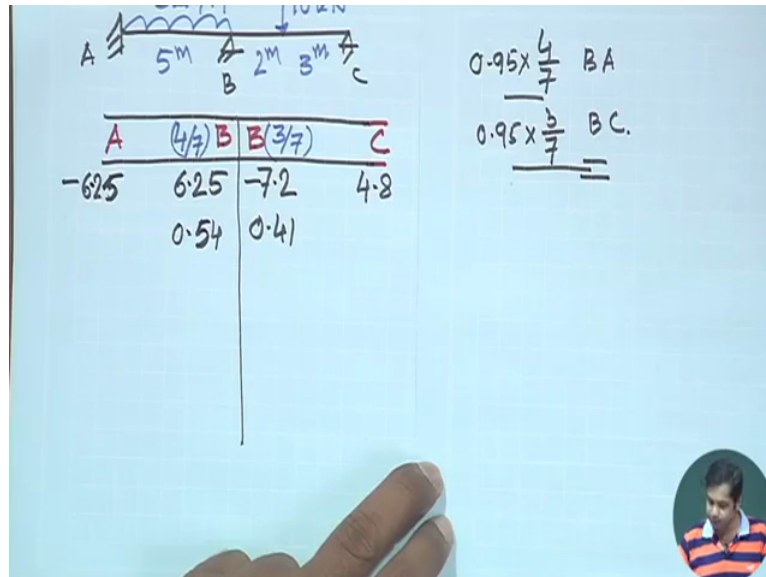 10 kN
A 5m B 2m 3m C
A (4/7) B B (3/7) C
-6.25 6.25 -7.2 4.8
0.54 0.41
0.95 × 4/7 BA
0.95 × 3/7 BC.